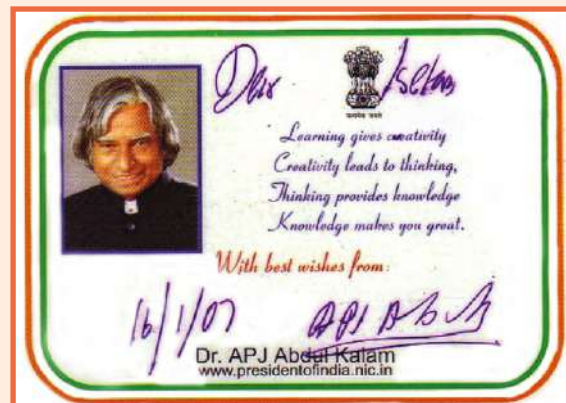 Dear
सत्यमेव जयते
Learning gives creativity
Creativity leads to thinking,
Thinking provides knowledge
Knowledge makes you great.
With best wishes from:
16/1/07
Dr. APJ Abdul Kalam
www.presidentofindia.nic.in